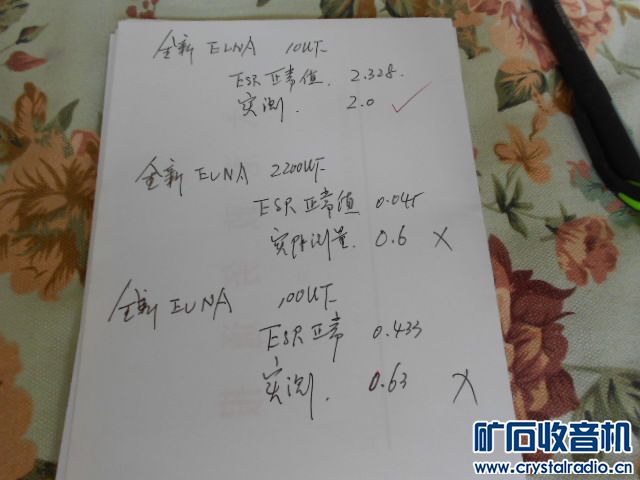 全新 ELNA 10UF
ESR正常值. 2.328.
实测. 2.0 ✓
全新 ELNA 2200UF
ESR正常值 0.045
实际测量. 0.6 X
全新 ELNA 100UF
ESR正常 0.433
实测. 0.63 X
矿石收音机
www.crystalradio.cn